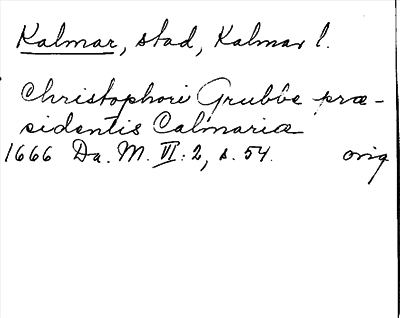 Kalmar, stad, Kalmar l.
Christophori Grubbe præ-
sidentis Calmariæ
1666 Da. M. VI: 2, s. 54. orig